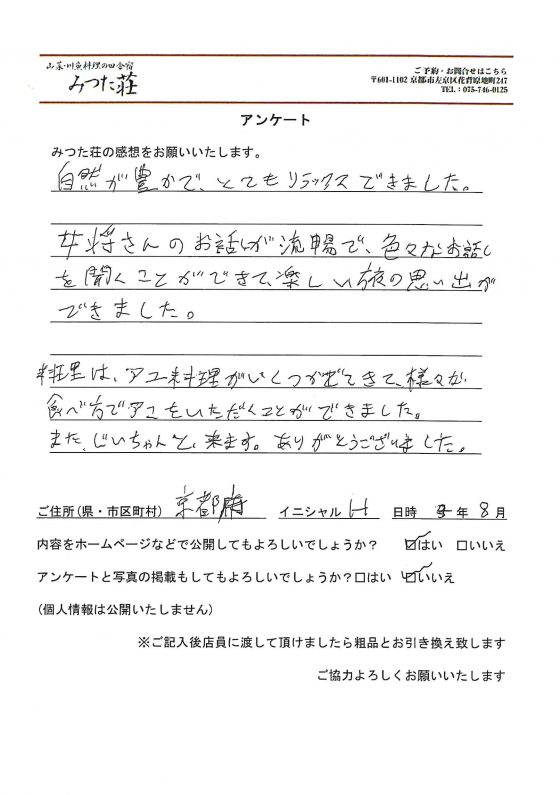 山菜・川魚料理の田舎宿
みつた荘
ご予約・お問合せはこちら
〒601-1102 京都市左京区花背原地町247
TEL：075-746-0125
アンケート
みつた荘の感想をお願いいたします。
自然が豊かで、とてもリラックスできました。
女将さんのお話しが流暢で、色々なお話し
を聞くことができて、楽しい夜の思い出が
できました。
料理は、アユ料理がいくつかでてきて、様々な
食べ方でアユをいただくことができました。
また、じいちゃんと、来ます。ありがとうございました。
ご住所(県・市区町村) 京都府 イニシャル H 日時 年 8月
内容をホームページなどで公開してもよろしいでしょうか？ ☑はい □いいえ
アンケートと写真の掲載もしてもよろしいでしょうか？□はい ☑いいえ
(個人情報は公開いたしません)
※ご記入後店員に渡して頂けましたら粗品とお引き換え致します
ご協力よろしくお願いいたします